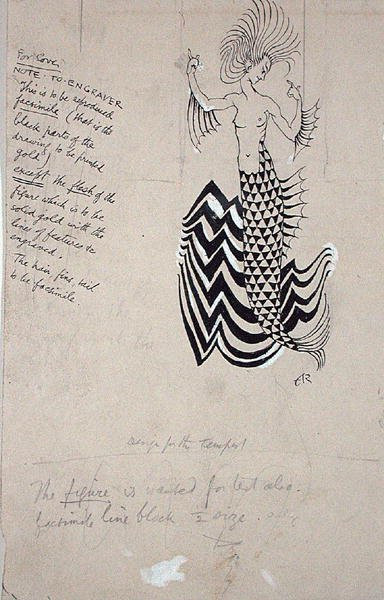 For Cover
NOTE · TO · ENGRAVER
This is to be reproduced
facsimile (that is the
black parts of the
drawing to be printed
gold)
except the flesh of the
figure which is to be
solid gold with the
lines of features &c
engraved.
The hair, fins, tail
to be facsimile.
ER
design for the Tempest
The figure is wanted for text also.
facsimile line block ½ size.